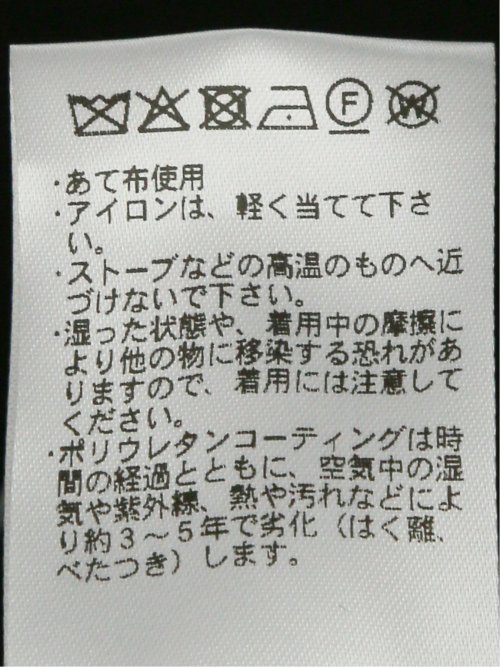 F W
・あて布使用
・アイロンは、軽く当てて下さ
い。
・ストーブなどの高温のものへ近
づけないで下さい。
・湿った状態や、着用中の摩擦に
より他の物に移染する恐れがあ
りますので、着用には注意して
ください。
・ポリウレタンコーティングは時
間の経過とともに、空気中の湿
気や紫外線、熱や汚れなどによ
り約３～５年で劣化（はく離、
べたつき）します。